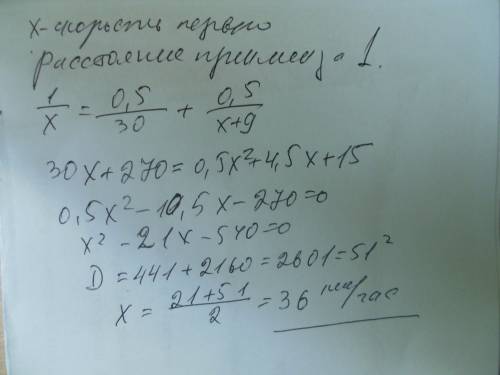 х-скорость первого
Расстояние примем за 1.
1/x = 0,5/30 + 0,5/x+9
30x+270=0,5x²+4,5x+15
0,5x²-10,5x-270=0
x²-21x-540=0
D=441+2160=2601=51²
x = 21+51/2 = 36 км/час